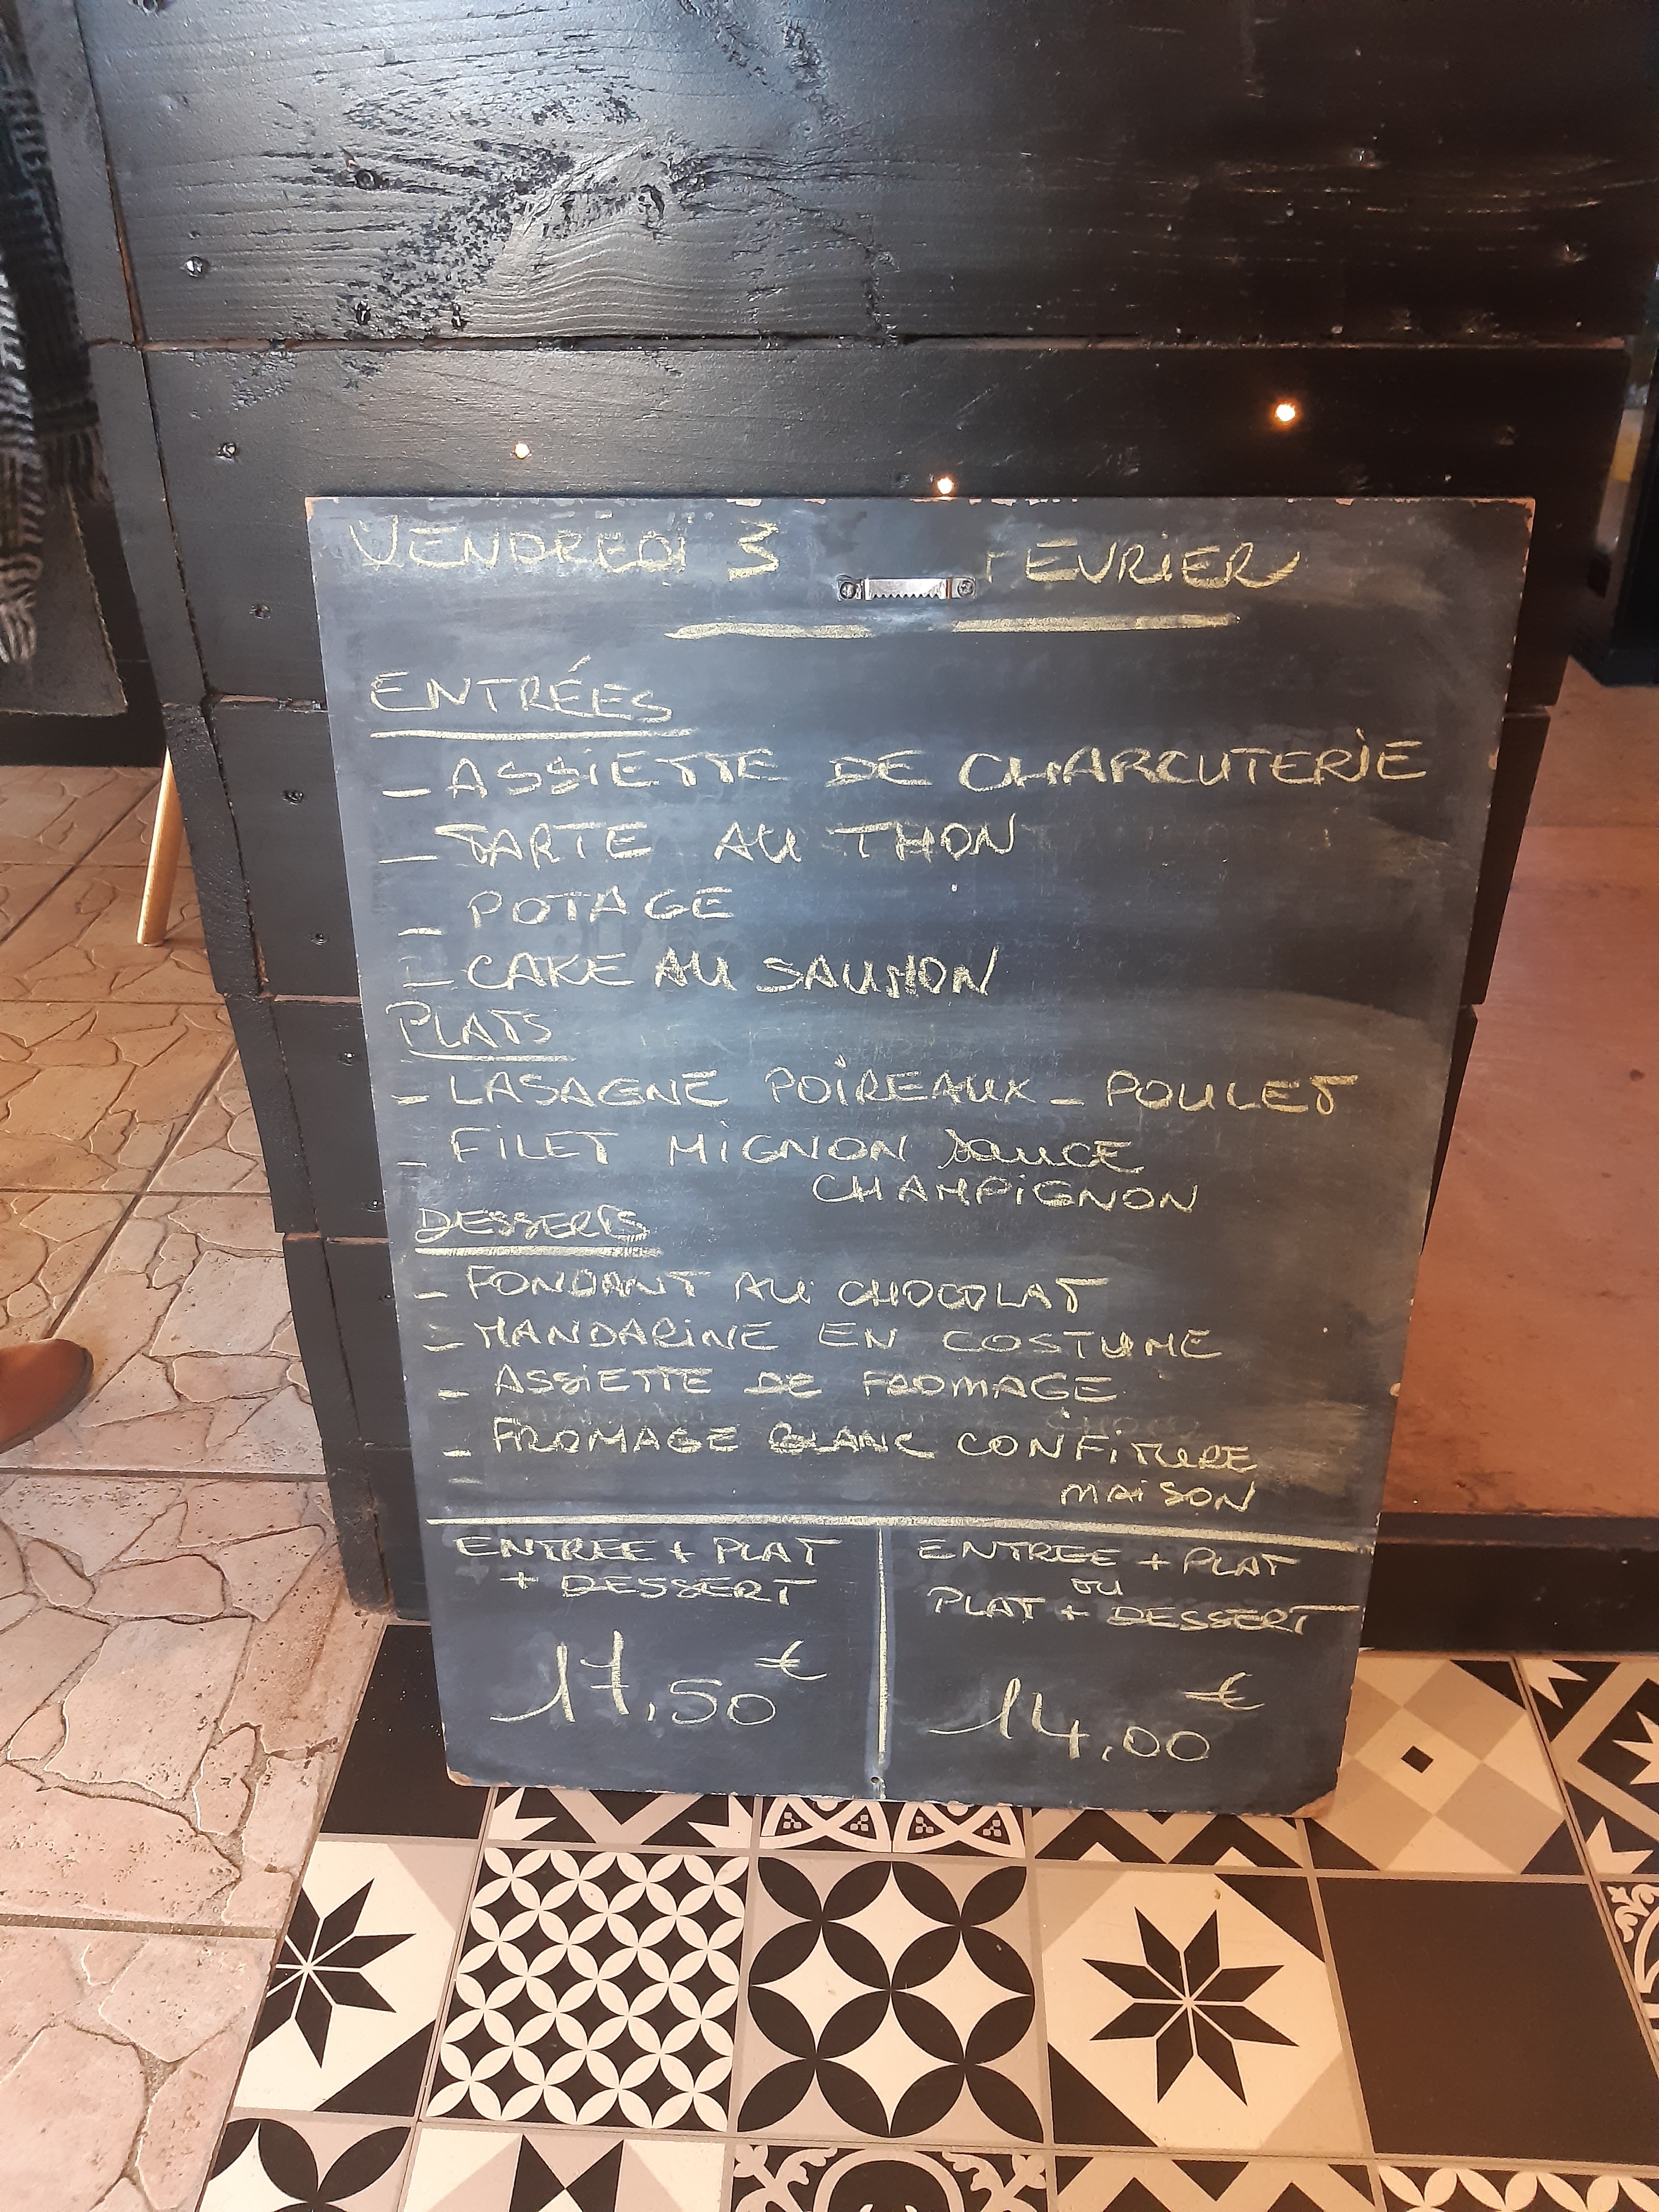 VENDREDI 3 FEVRIER
ENTRÉES
- ASSIETTE DE CHARCUTERIE
- TARTE AU THON
- POTAGE
- CAKE AU SAUMON
PLATS
- LASAGNE POIREAUX - POULET
- FILET MIGNON SAUCE
CHAMPIGNON
DESSERTS
- FONDANT AU CHOCOLAT
- MANDARINE EN COSTUME
- ASSIETTE DE FROMAGE
- FROMAGE BLANC CONFITURE
MAISON
ENTREE + PLAT
+ DESSERT
17,50€
ENTREE + PLAT
OU
PLAT + DESSERT
14,00€